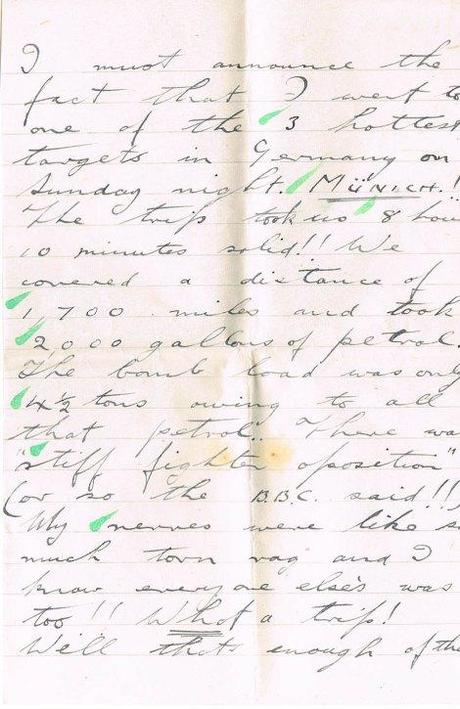 I must announce the
fact that I went to
one of the 3 hottest
targets in Germany on
Sunday night. MÜNICH.!
The trip took us 8 hou
10 minutes solid!! We
covered a distance of
1,700 miles and took
2000 gallons of petrol.
The bomb load was only
4½ tons owing to all
that petrol. There wa
"stiff fighter oposition"
(or so the B.B.C. said!!)
My nerves were like s
much torn rag and I
know everyone else's was
too!! What a trip!
We'll that's enough of the